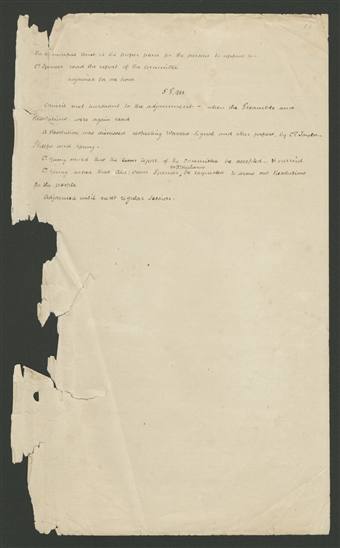 the Municipal Court is the proper place for the persons to appear in -
Cr Spencer read the report of the Committee
adjourned for one hour
5 P.M.
Council met pursuant to the adjournment - when the Preamble and
Resolutions were again read
A Resolution was discussed respecting Warrants signed and other papers, by Cr Taylor
Phelps and Young -
Cr Young moved that the report of the Committee be accepted - & carried
Cr Young moved that Ald: Orson Spencer, be requested to draw out Resolutions
for the people
Adjourned until next regular Session.